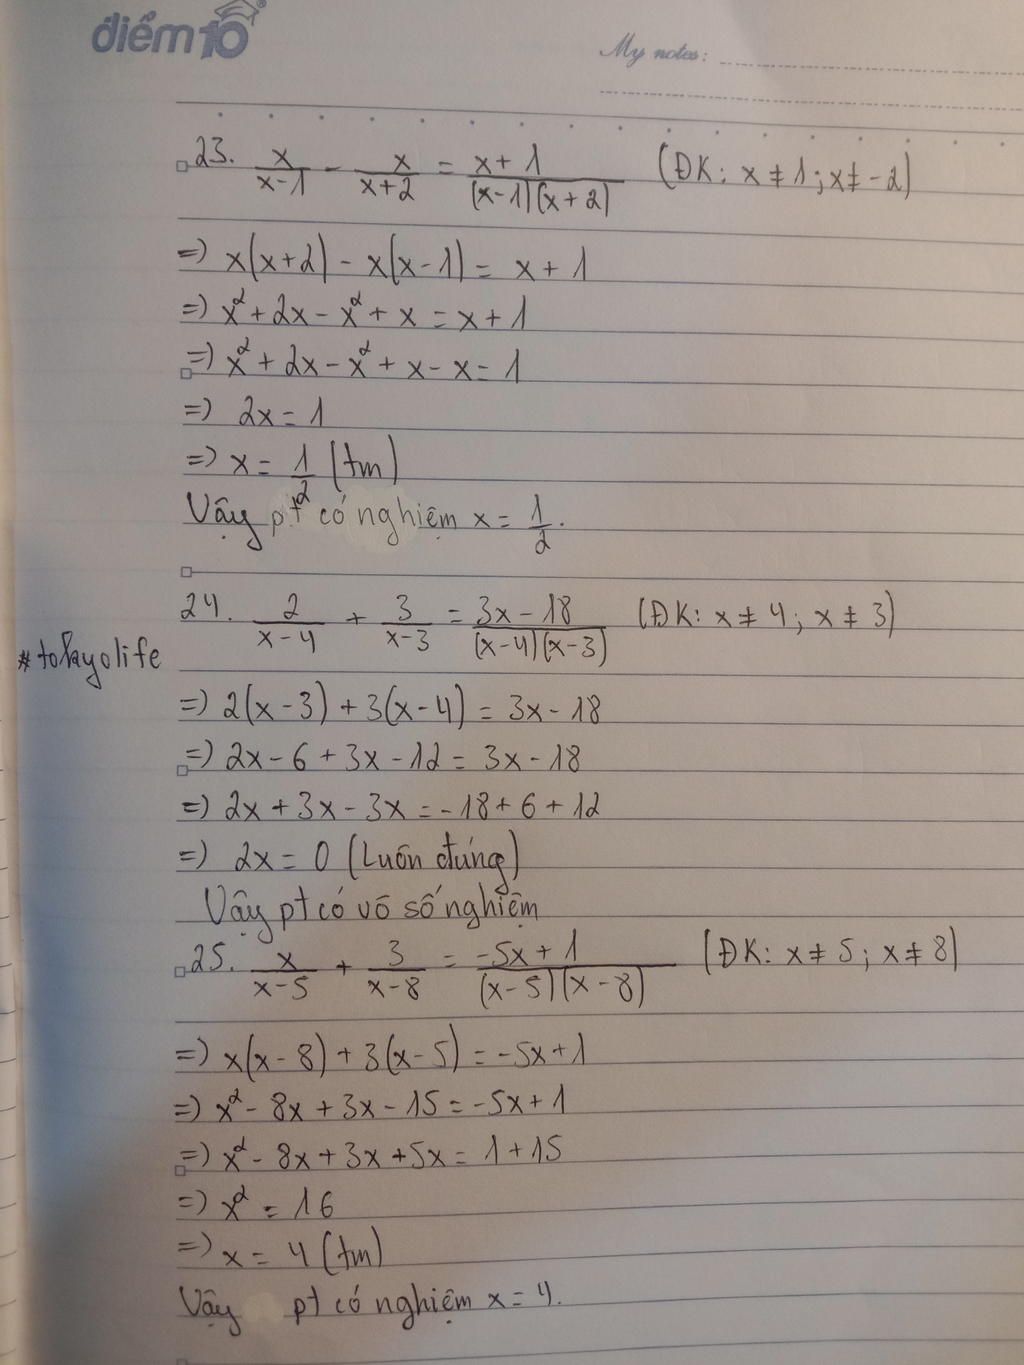 điểm10
My notes:
23. x/(x-1) - x/(x+2) = (x+1)/((x-1)(x+2)) (ĐK: x ≠ 1; x ≠ -2)
=) x(x+2) - x(x-1) = x+1
=) x² + 2x - x² + x = x+1
=) x² + 2x - x² + x - x = 1
=) 2x = 1
=) x = 1/2 (tm)
Vậy pt có nghiệm x = 1/2.
24. 2/(x-4) + 3/(x-3) = (3x-18)/((x-4)(x-3)) (ĐK: x ≠ 4; x ≠ 3)
#tokyolife
=) 2(x-3) + 3(x-4) = 3x-18
=) 2x-6+3x-12 = 3x-18
=) 2x+3x-3x = -18+6+12
=) 2x = 0 (Luôn đúng)
Vậy pt có vô số nghiệm
25. x/(x-5) + 3/(x-8) = (-5x+1)/((x-5)(x-8)) (ĐK: x ≠ 5; x ≠ 8)
=) x(x-8) + 3(x-5) = -5x+1
=) x² - 8x + 3x - 15 = -5x+1
=) x² - 8x + 3x + 5x = 1+15
=) x² = 16
=) x = 4 (tm)
Vậy pt có nghiệm x = 4.